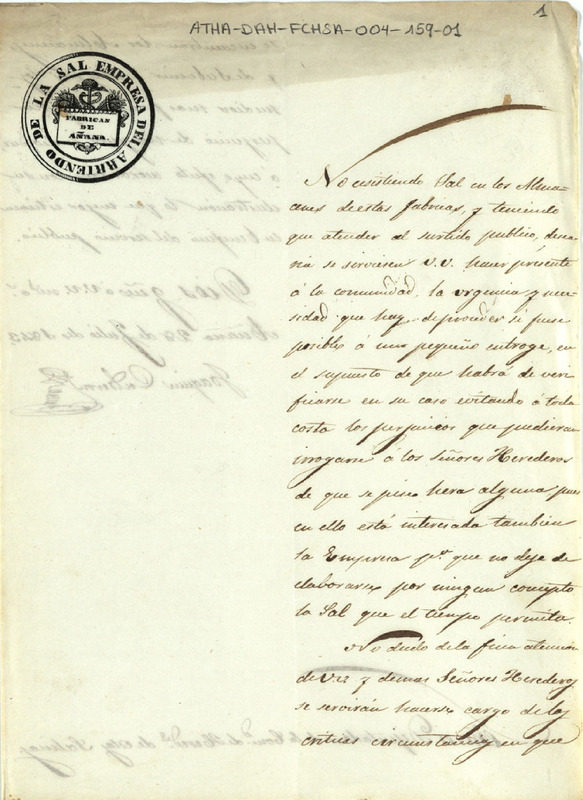 1
ATHA-DAH-FCHSA-004-159-01
EMPRESA DEL ARRIENDO DE LA SAL
FABRICAS
DE
AÑANA.
No ecsistiendo Sal en los Alma
canes de estas fabricas, y teniendo
que atender al surtido publico, desea
ria se sirviesen V.V. hacer presente
á la comunidad, la urgencia y nece-
sidad que hay de proceder si fuese
posible á un pequeño entroge, en
el supuesto de que habrá de veri
ficarse en su caso evitando á toda
costa los perjuicios que pudieran
irrogarse á los Señores Herederos
de que se pise hera alguna pues
en ello está interesada tambien
la Empresa pr. que no deje de
elaborarse por ningun concepto
la Sal que el tiempo permita.
No dudo de la fina atencion
de Vs y demas Señores Herederos
se servirán hacerse cargo de las
criticas circunstancias en que